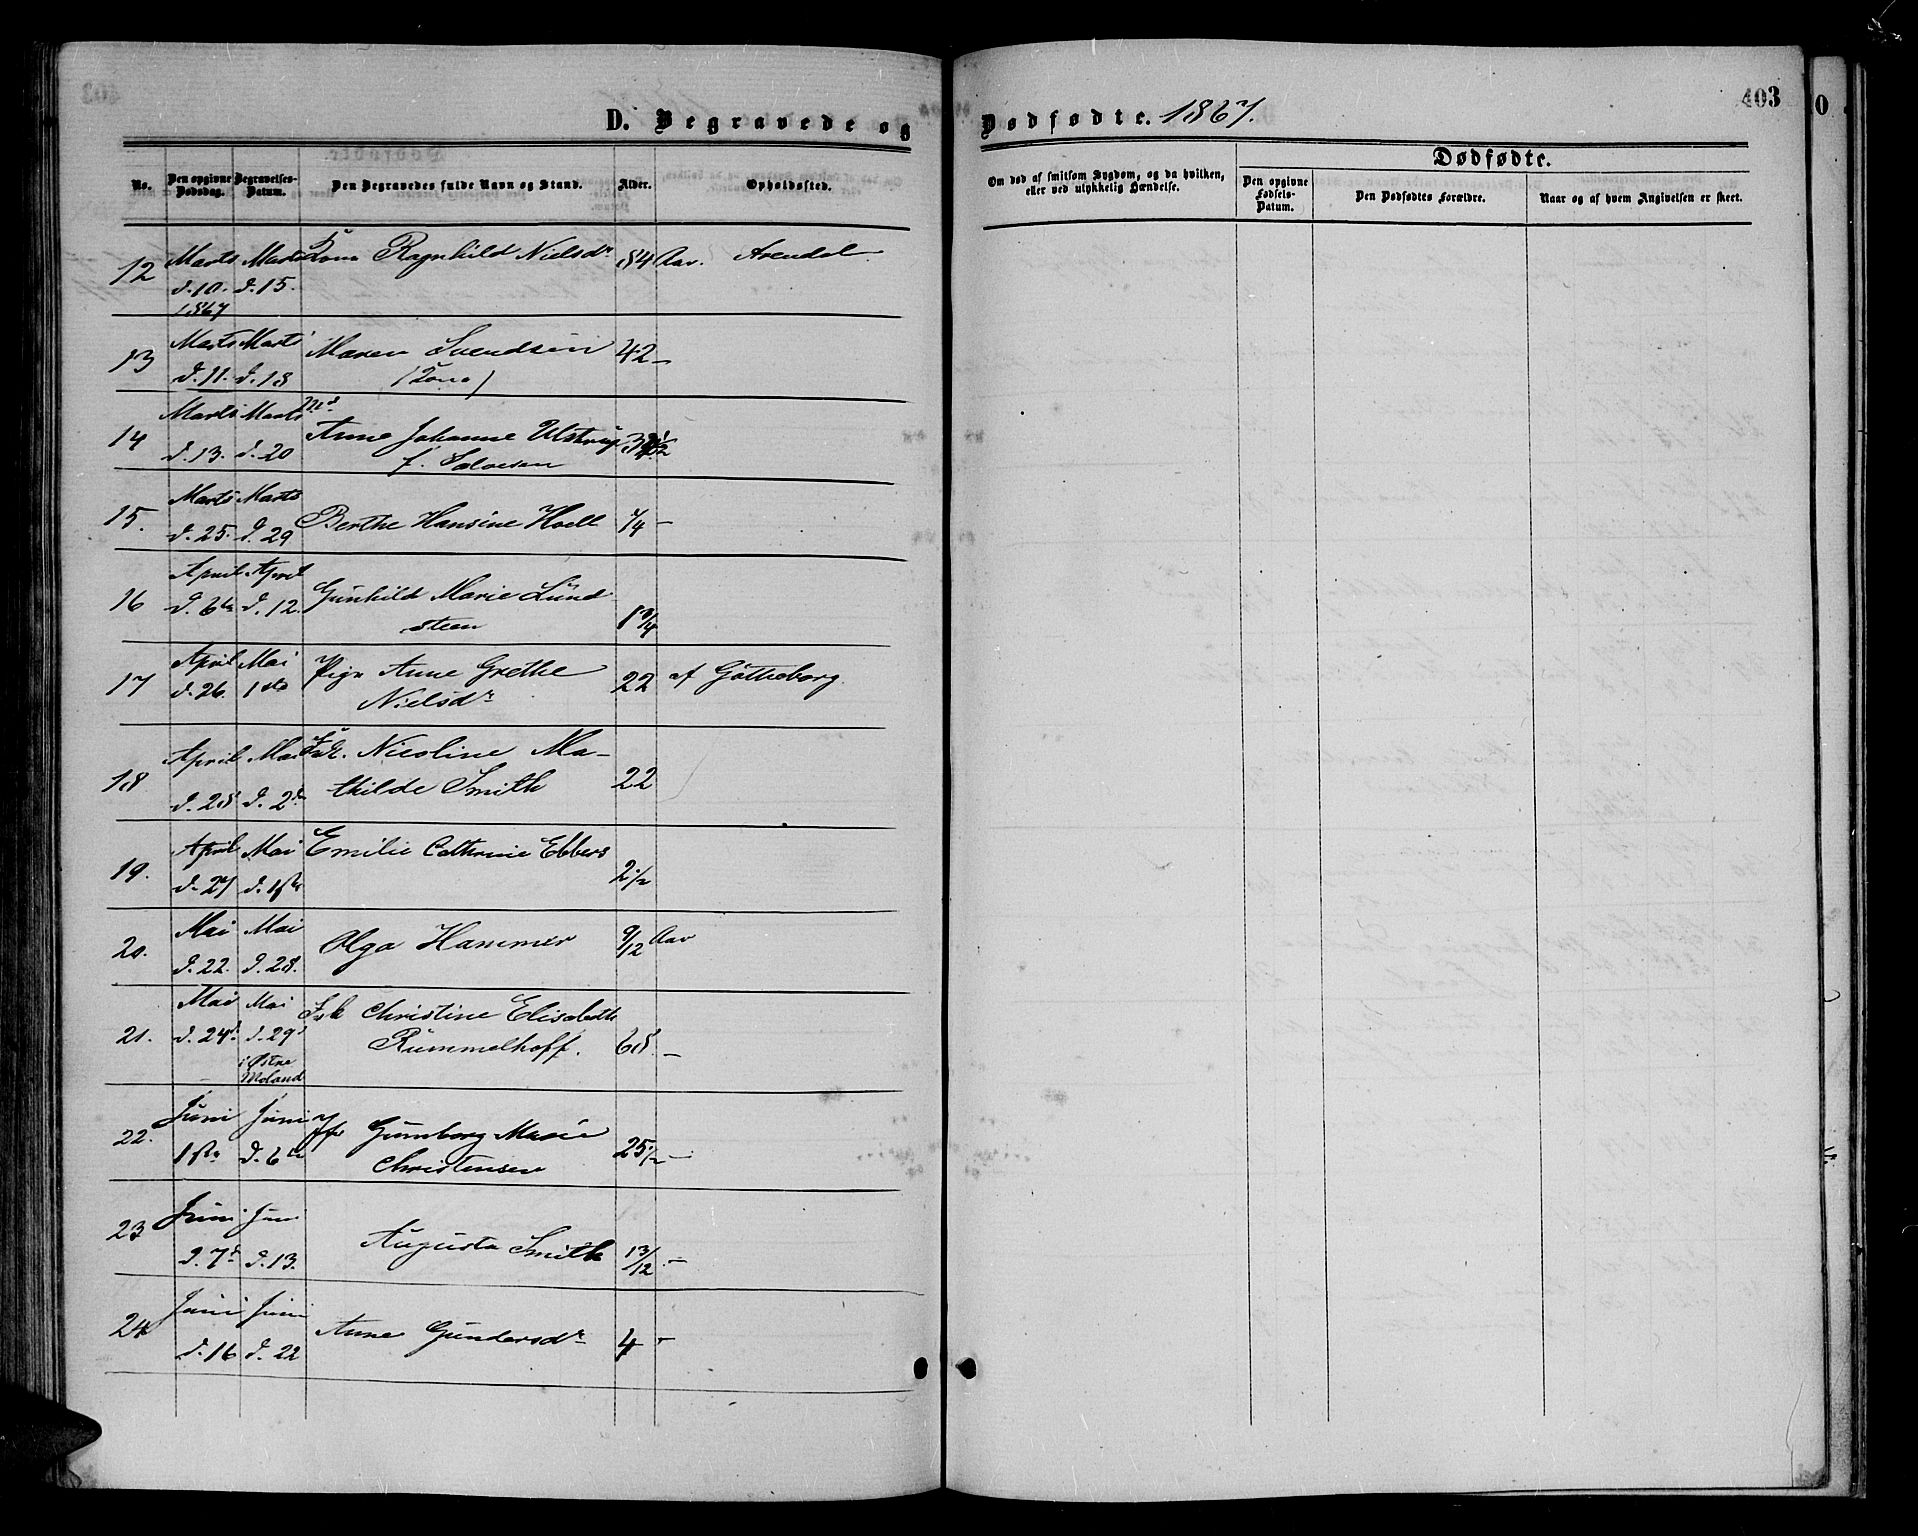 403
D. Begravede og Dødfødte. 1867.
No. Den opgivne Dødsdag. Begravelses-Datum. Den Begravedes fulde Navn og Stand. Alder. Opholdssted.
Om død af smitsom Sygdom, og da hvilken, eller ved ulykkelig Hændelse.
Dødfødte.
Den opgivne Fødsels-Datum. Den Dødfødtes Forældre. Naar og af hvem Angivelsen er skeet.
12 Marts Marts Kone Ragnhild Nielsdr 84 Aar. Arendal
d. 10. d. 15.
1867
13 Marts Marts Maren Svendsen 42 –
d. 11. d. 18 (Kone)
14 Marts Marts
d. 13. d. 20 Anne Johanne Ulstrup
f. Salvesen
15. Marts Marts
d. 25. d. 29 Berthe Hansine Hoell 1/4 –
16 April April
d. 6te d. 12. Gunhild Marie Lund
steen 1 3/4
17 April Mai Pige Anne Grethe 22 af Gøtheborg
d. 26. 1ste Nielsdr
18 April Mai Frk. Nicoline Ma-
d. 28 d. 2d thilde Smith 22
19. April Mai Emilie Cathrine Ebbers
d. 27 d. 1ste 2 1/2
20. Mai Mai Olga Hammer 9/12 Aar
d. 22. d. 28.
21. Mai Mai Frk Christine Elisabeth
d. 24d. d. 29d Rummelhoff. 68. –
i Østre
Moland
22. Juni Juni Jfr Gunborg Marie
1ste d. 6te Christensen 25 1/2 –
23 Juni Juni
d. 7d d. 13. Augusta Smith 13/12 –
24 Juni Juni Anne Gundersdr 4 –
d. 16 d. 22